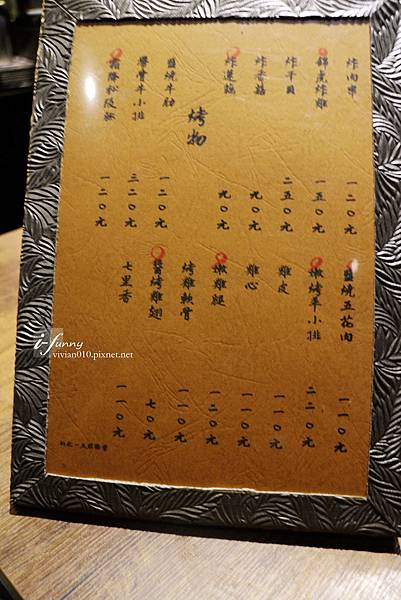 炸肉串 一二〇元
炸雞 一五〇元
炸干貝 二五〇元
炸香菇 九〇元
炸蓮藕 九〇元
烤物
鹽燒牛肋 一二〇元
帶骨牛小排 三二〇元
霜降松阪豬 一二〇元
鹽燒五花肉 一一〇元
嫩烤羊小排 二二〇元
雞皮 一一〇元
雞心 一一〇元
嫩雞腿 一二〇元
烤雞軟骨 一一〇元
醬烤雞翅 七〇元
七里香 一一〇元
i-funny
vivian010.pixnet.net